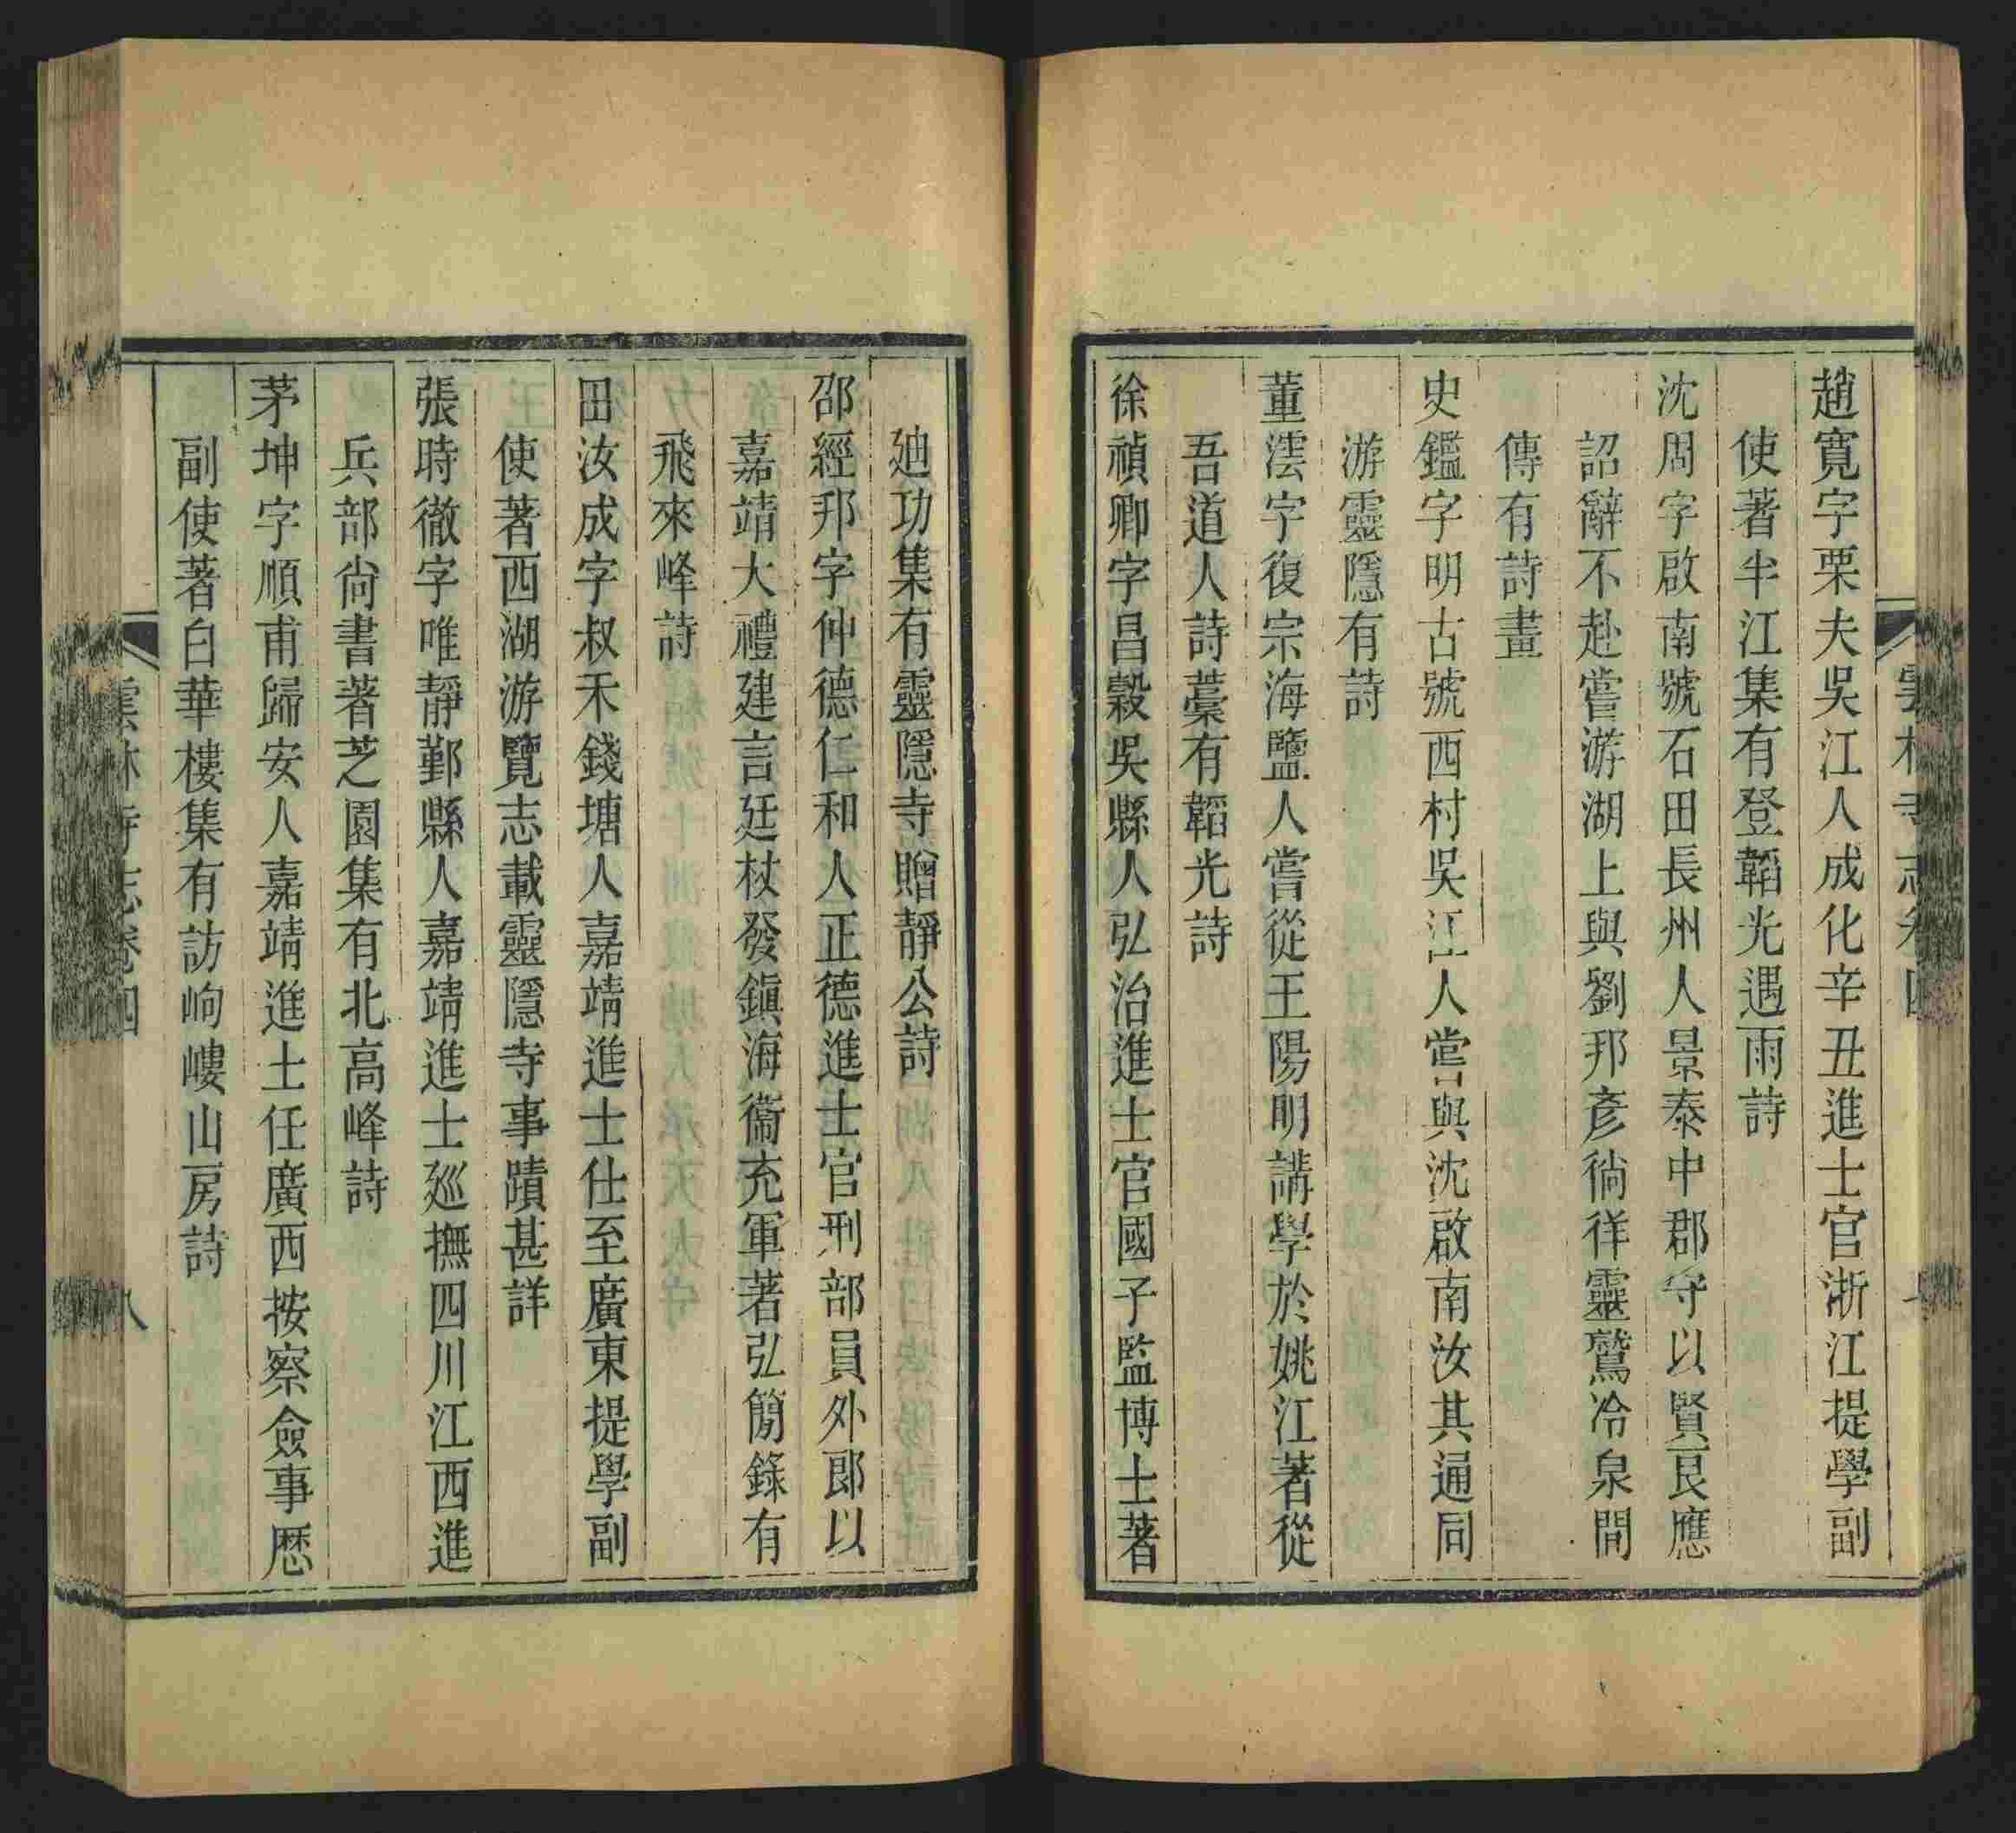 趙寬字栗夫吳江人成化辛丑進士官浙江提學副
使著半江集有登韜光遇雨詩
沈周字啟南號石田長州人景泰中郡守以賢良應
詔辭不赴嘗游湖上與劉邦彥徜徉靈鷲冷泉間
傳有詩畫
史鑑字明古號西村吳江人嘗與沈啟南汝其通同
游靈隱有詩
董澐字復宗海鹽人嘗從王陽明講學於姚江著從
吾道人詩藁有韜光詩
徐禎卿字昌穀吳縣人弘治進士官國子監博士著
廸功集有靈隱寺贈靜公詩
邵經邦字仲德仁和人正德進士官刑部員外郎以
嘉靖大禮建言廷杖發鎮海衞充軍著弘簡錄有
飛來峰詩
田汝成字叔禾錢塘人嘉靖進士仕至廣東提學副
使著西湖游覽志載靈隱寺事蹟甚詳
張時徹字唯靜鄞縣人嘉靖進士廵撫四川江西進
兵部尚書著芝園集有北高峰詩
茅坤字順甫歸安人嘉靖進士任廣西按察僉事歷
副使著白華樓集有訪岣嶁山房詩
雲林寺志卷四
八